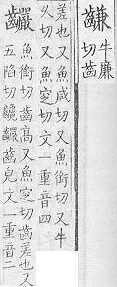 牛廉
切齒
差也又魚咸切又魚銜切又牛
切又魚窆切文一重音四
魚銜切齒高又魚窆切齒差也又
五陷切齒皃文一重音二